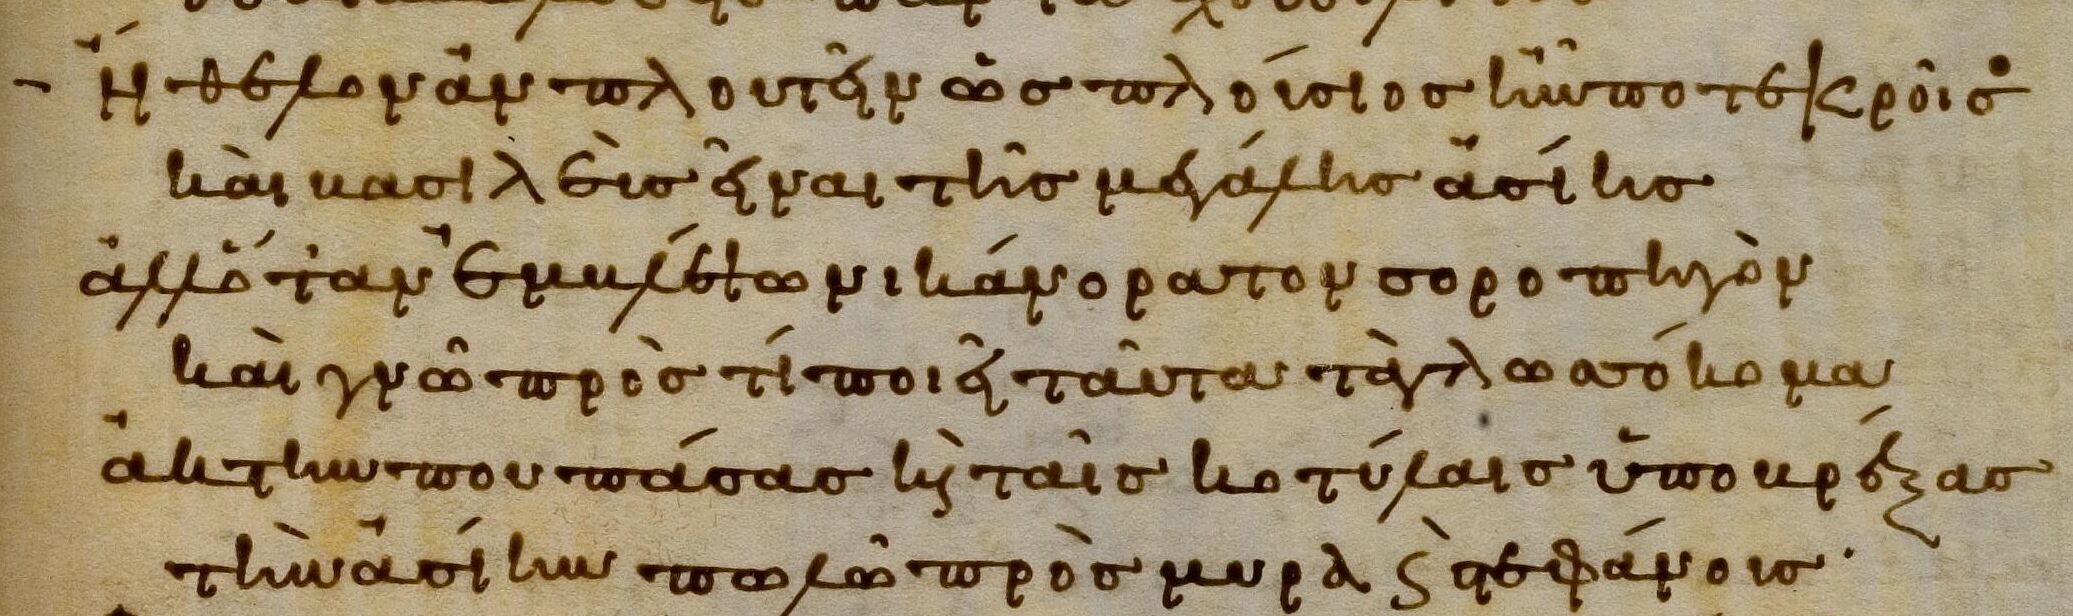 Ἤθελον ἂν πλουτεῖν ὡς πλούσιος ἦν ποτε κροῖσος
καὶ βασιλεὺς εἶναι τῆς μεγάλης ἀσίης
ἀλλ' ὅταν ἐμβλέψω νικάνορα τὸν σοροπηγὸν
καὶ γνῶ πρὸς τί ποιεῖ ταῦτα τὰ γλωσσόκομα
ἀκτήν που πάσας κ ταῖς κοτύλαις ὑποβρέξας
τὴν ἀσίην πωλῶ πρὸς μύρα κ στεφάνους·